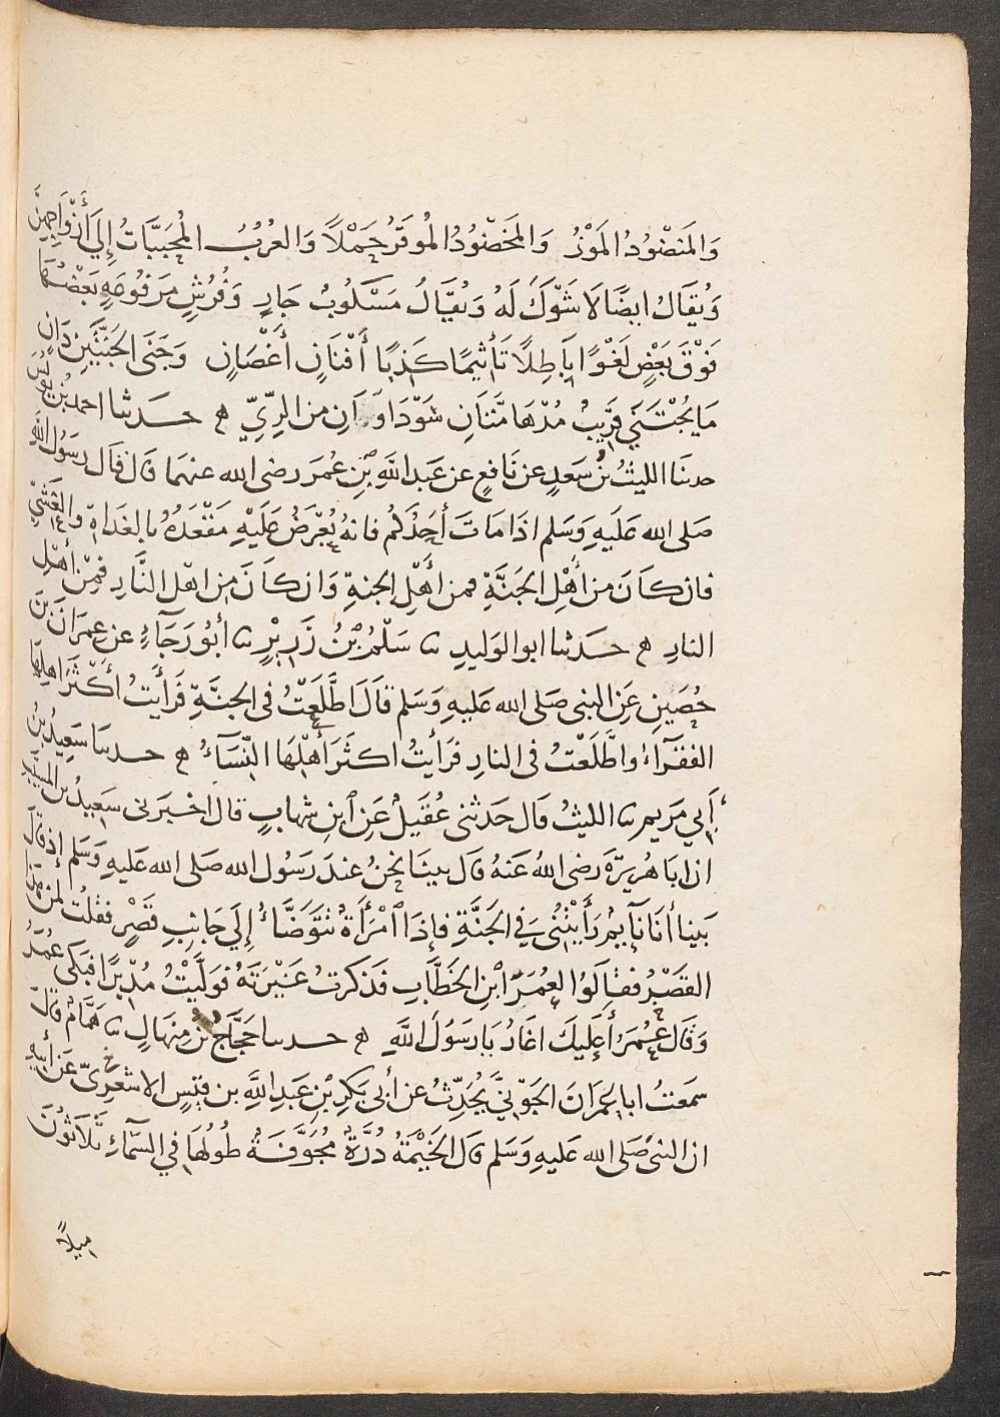 وَالمَنضُودُ المَوْزُ وَالمَخضُودُ المُوقَرُ حَمْلًا وَالعُرُبُ المُحَبَّبَاتُ إِلَي أَزْوَاجِهِنَّ
وَيُقَالُ ايضًا لَا شَوْكَ لَهُ وَيُقَالُ مَسْكُوبٌ جَارٍ وَفُرُشٍ مَرفُوعَةٍ بَعْضُهَا
فَوْقَ بَعْضٍ لَغْوًا بَاطِلًا تَأْثِيمًا كَذِبًا أَفْنَانٍ أَغْصَانٍ وَجَنَى الجَنَّتَيْنِ دَانٍ
مَا يُجْتَنَي قَرِيبٌ مُدْهَامَّتَانِ سَوْدَاوَانِ مِن الرِّيِّ ه حَدثنا احمد بْنُ يُونُسَ
حدثنا الليثُ بنُ سَعدٍ عن نَافعٍ عن عَبدِ اللَّهِ بْنِ عُمَرَ رضى الله عنهما قَال قَال رسَوُلُ اللَّهِ
صَلى الله عَلَيهِ وَسَلم اذَا مَاتَ أَحَدُكُم فانهُ يُعْرَضُ عَلَيْهِ مَقْعَدُهُ بالغَدَاةِ والعَشِيِّ
فان كَانَ مِن أَهْلِ الجَنَّةِ فمن أَهْلِ الجنةِ وَان كَانَ مِن اهْلِ النَّارِ فَمِنْ أَهْلِ
النارِ ه حَدثنا ابوالوَليدِ ثنا سَلْمُ بْنُ زَرِيرٍ ثنا أبُورَجَآءٍ عن عِمرَانَ بنَ
حُصَينٍ عَنِ النبى صَلى الله عَليهِ وَسَلم قَالَ اطَّلَعْتُ فى الجنَّةِ فَرَأَيتُ أَكْثَرَ اهلِهَا
الفقرَآءَ واطَّلَعْتُ فى النارِ فرَأَيتُ اكثَرَ أَهْلِهَا النِّسَآءَ ه حدثنا سَعِيدُ بنُ
أَبِي مَريم ثنا الليثُ قال حَدثنى عُقَيلٌ عَنِ ابنِ شهابٍ قال اخبَرنى سَعِيدُ بن المسَيَّبِ
ان ابَا هُرَيرَةَ رضى اللهُ عَنهُ قال بينَا نحنُ عندَ رَسُولِ الله صَلى الله عَليهِ وَسَلم إذ قَالَ
بَينا أنَا نَآيمٌ رَأَيْتُنِي فِي الجَنَّةِ فإِذَا امْرَأَةٌ تتَوَضَّأُ إِلَي جَانِبِ قَصْرٍ فقلْتُ لمن هَذَا
القَصْرُ فقَالَوُا لِعُمَرَ ابْنِ الخطَّابِ فذكرتُ غَيْرَتَهُ فوَلَّيْتُ مُدْبِرًا فبَكى عُمَرُ
وَقَال عُمَرُ أَعَلَيكَ اغَارُ يَا رَسَوُلَ اللَّهِ ه حدثنا حَجَّاجُ بْنُ مِنهَالٍ ثنا هَمَّامٌ قالَ
سَمعتُ ابا عِمرَانَ الجَوْنِيَّ يُحَدِّثُ عن أبى بَكرِ بْنِ عَبدِ اللَّهِ بن قيسٍ الاشعَرِيّ عَن أَبِيهِ
ان النبى صَلى الله عَليهِ وَسَلم قَال الخَيْمَةُ دُرَّةٌ مُجَوَّفَةٌ طُولُهَا فِي السَّمآءِ ثَلَاثُونَ
مِيلاً